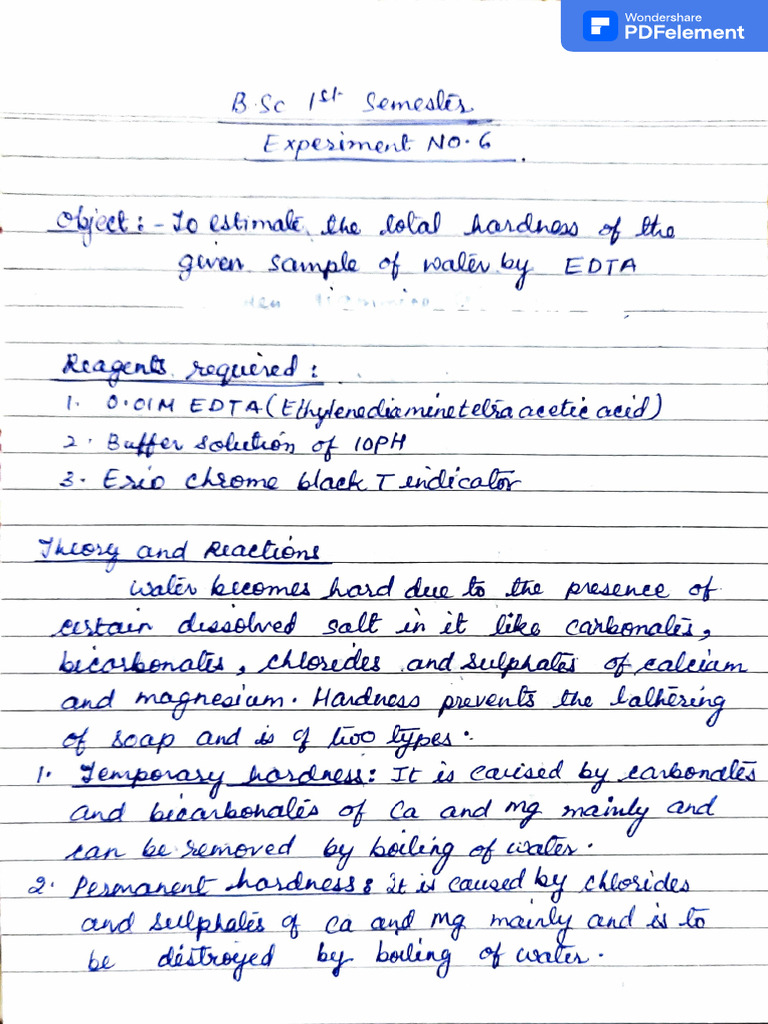 Wondershare
PDFelement
B.Sc 1st Semester
Experiment NO. 6
Object :- To estimate the total hardness of the
given sample of water by EDTA
Reagents required :
1. 0.01M EDTA (Ethylenediaminetetra acetic acid)
2. Buffer solution of 10PH
3. Erio chrome black T indicator
Theory and Reactions
water becomes hard due to the presence of
certain dissolved salt in it like carbonates,
bicarbonates, chlorides and sulphates of calcium
and magnesium. Hardness prevents the lathering
of soap and is of two types.
1. Temporary hardness: It is caused by carbonates
and bicarbonates of Ca and Mg mainly and
can be removed by boiling of water.
2. Permanent hardness: it is caused by chlorides
and sulphates of Ca and Mg mainly and is to
be destroyed by boiling of water.